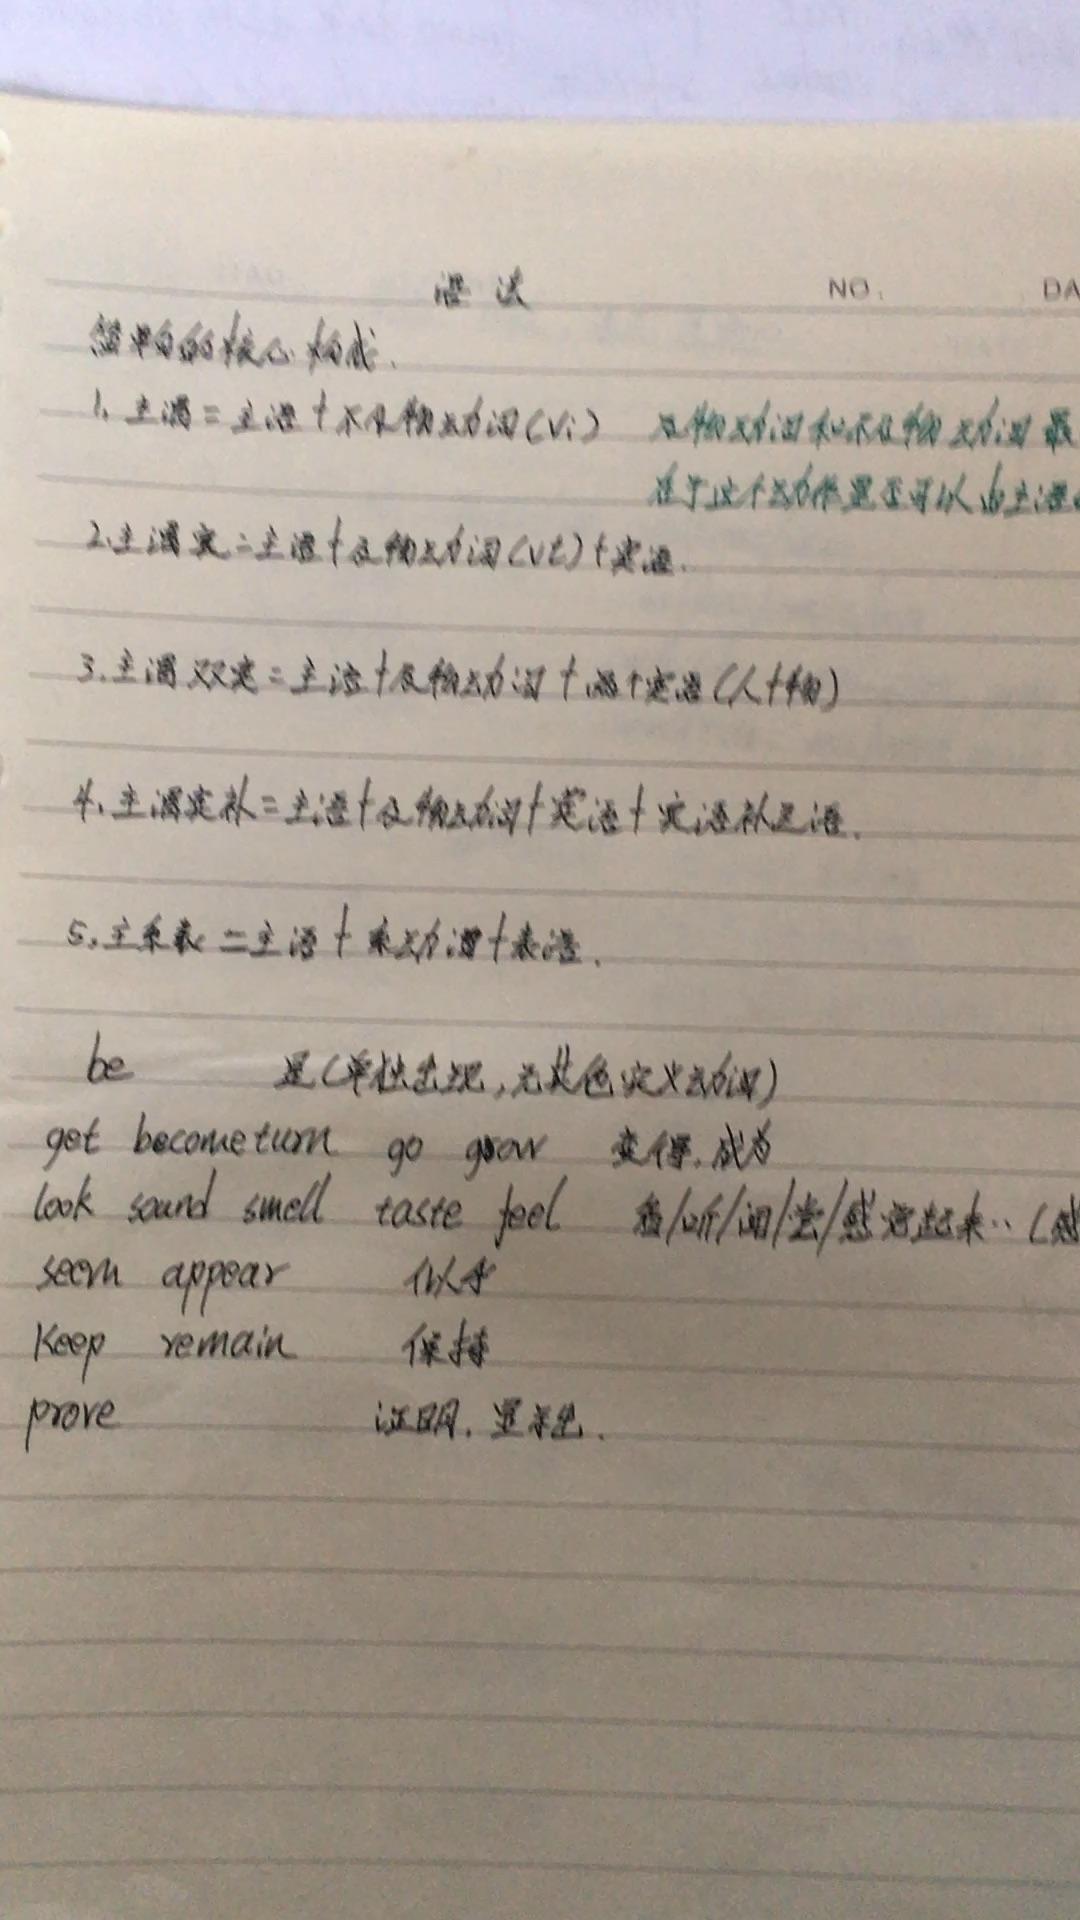 语法
NO.
DA
简单句的核心构成.
1. 主谓=主语+不及物动词(vi) 及物动词和不及物动词最
在于这个动作是否可以由主语
2.主谓宾=主语+及物动词(vt)+宾语.
3.主谓双宾=主语+及物动词+两个宾语(人+物)
4.主谓宾补=主语+及物动词+宾语+宾语补足语.
5.主系表=主语+系动词+表语.
be 是(单独出现,无其他实义动词)
get become turn go grow 变得.成为
look sound smell taste feel 看/听/闻/尝/感觉起来..(感
seem appear 似乎
keep remain 保持
prove 证明.显示出.